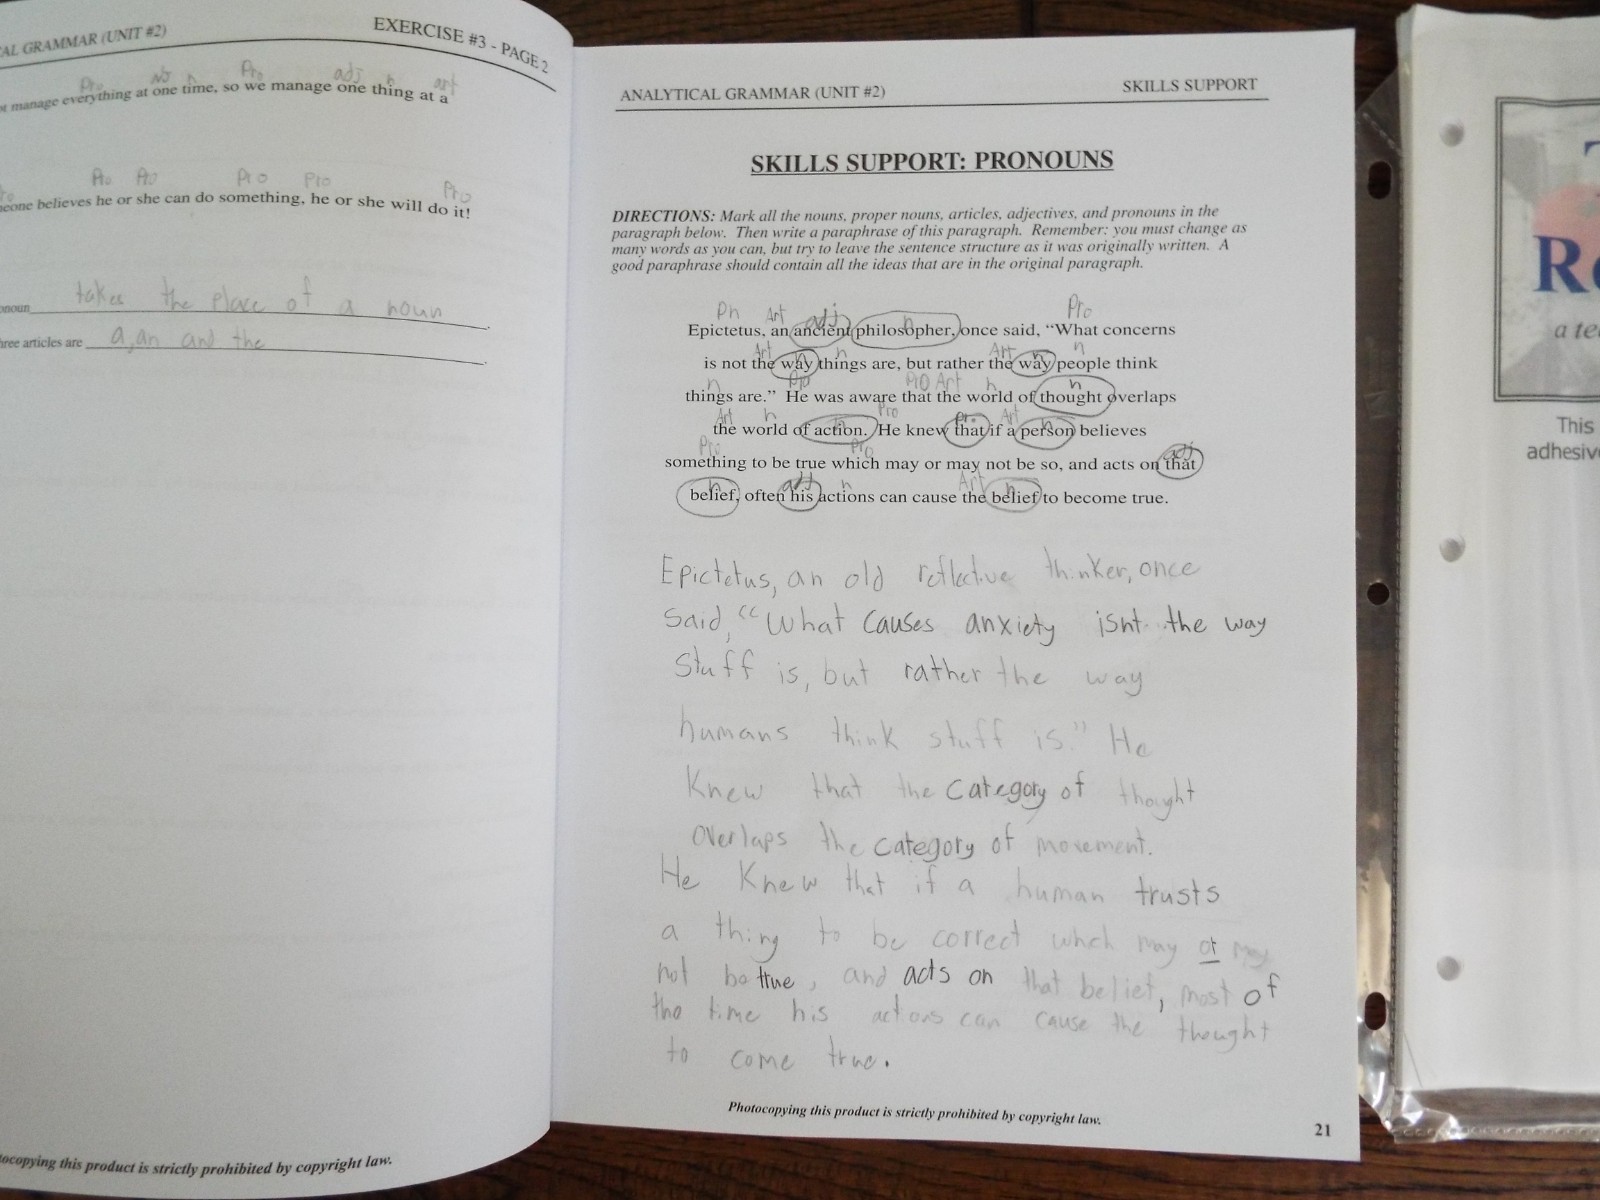 AL GRAMMAR (UNIT #2)
EXERCISE #3 - PAGE 2
Pro n Pro adj n art
manage everything at one time, so we manage one thing at a
Pro Pro Pro Pro Pro
believes he or she can do something, he or she will do it!
takes the place of a noun
articles are a, an and the
ocopying this product is strictly prohibited by copyright law.
ANALYTICAL GRAMMAR (UNIT #2)
SKILLS SUPPORT
SKILLS SUPPORT: PRONOUNS
DIRECTIONS: Mark all the nouns, proper nouns, articles, adjectives, and pronouns in the
paragraph below. Then write a paraphrase of this paragraph. Remember: you must change as
many words as you can, but try to leave the sentence structure as it was originally written. A
good paraphrase should contain all the ideas that are in the original paragraph.
Pn Art adj n Pro
Epictetus, an ancient philosopher, once said, “What concerns
Art n n Art n n
is not the way things are, but rather the way people think
n Pro Pro Art n n
things are.” He was aware that the world of thought overlaps
Art n n Pro pr. Art n
the world of action. He knew that if a person believes
Pro Pro adj
something to be true which may or may not be so, and acts on that
n adj n Art n
belief, often his actions can cause the belief to become true.
Epictetus, an old reflective thinker, once
said, “What causes anxiety isnt the way
stuff is, but rather the way
humans think stuff is." He
Knew that the category of thought
overlaps the category of movement.
He Knew that if a human trusts
a thing to be correct which may or may
not be true, and acts on that belief, most of
the time his actions can cause the thought
to come true.
Photocopying this product is strictly prohibited by copyright law.
21
a te
This
adhesiv